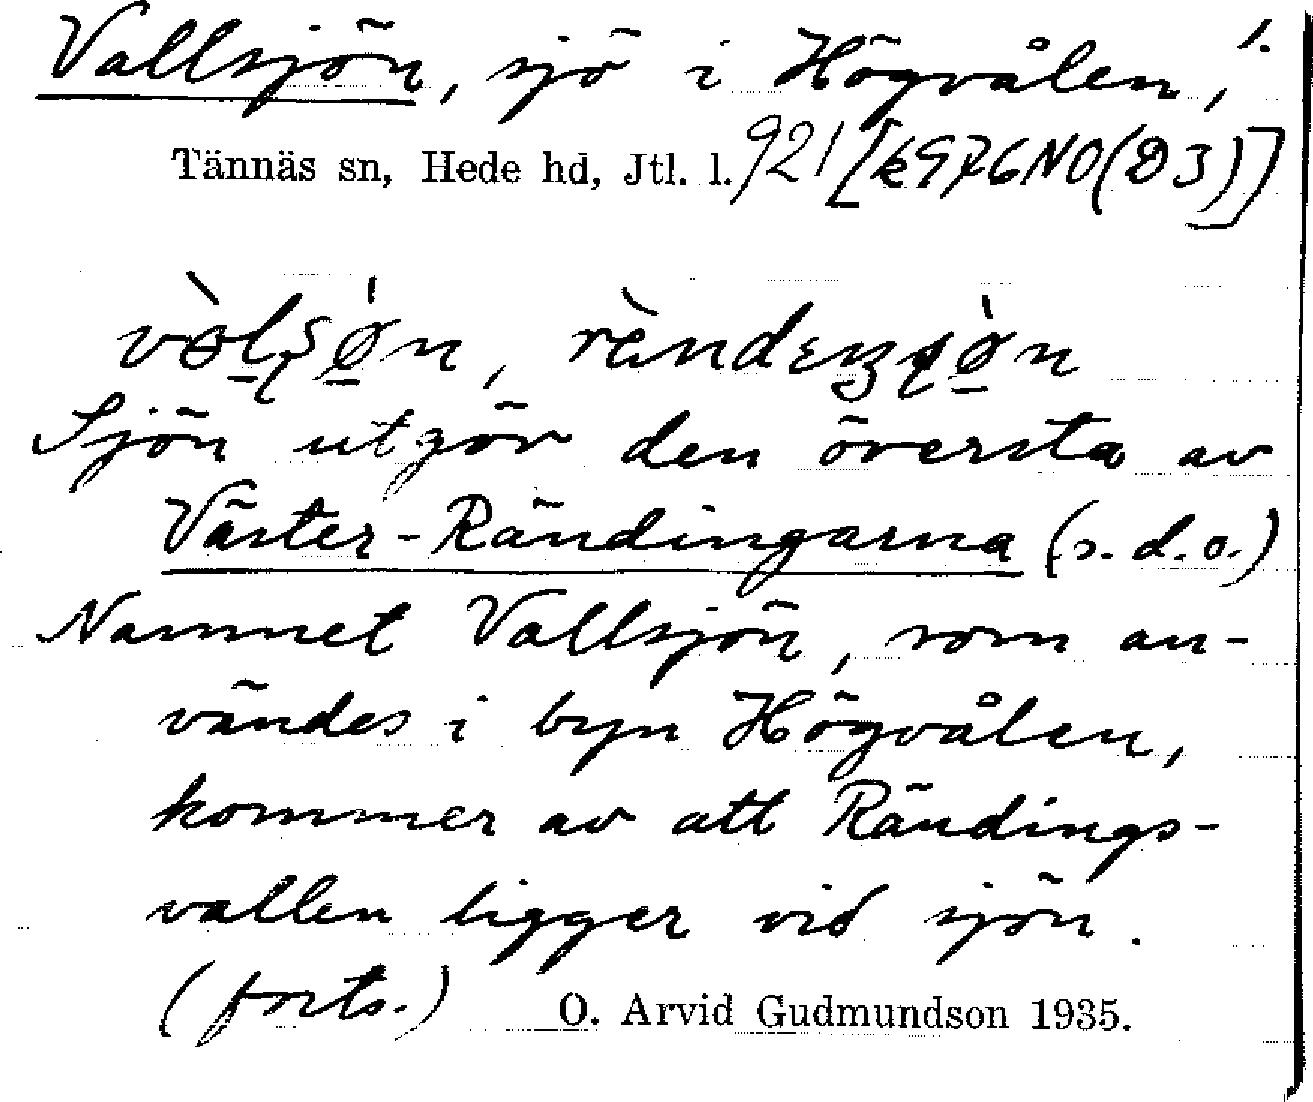 Vallsjön, sjö i Högvålen, 1.
Tännäs sn, Hede hd, Jtl. l. 921 [k976NO(D3)]
Sjön utgör den översta av
Väster-Rändingarna (s. d. o.)
Namnet Vallsjön, som an-
vändes i byn Högvålen,
kommer av att Rändings-
vallen ligger vid sjön.
(forts.) O. Arvid Gudmundson 1935.